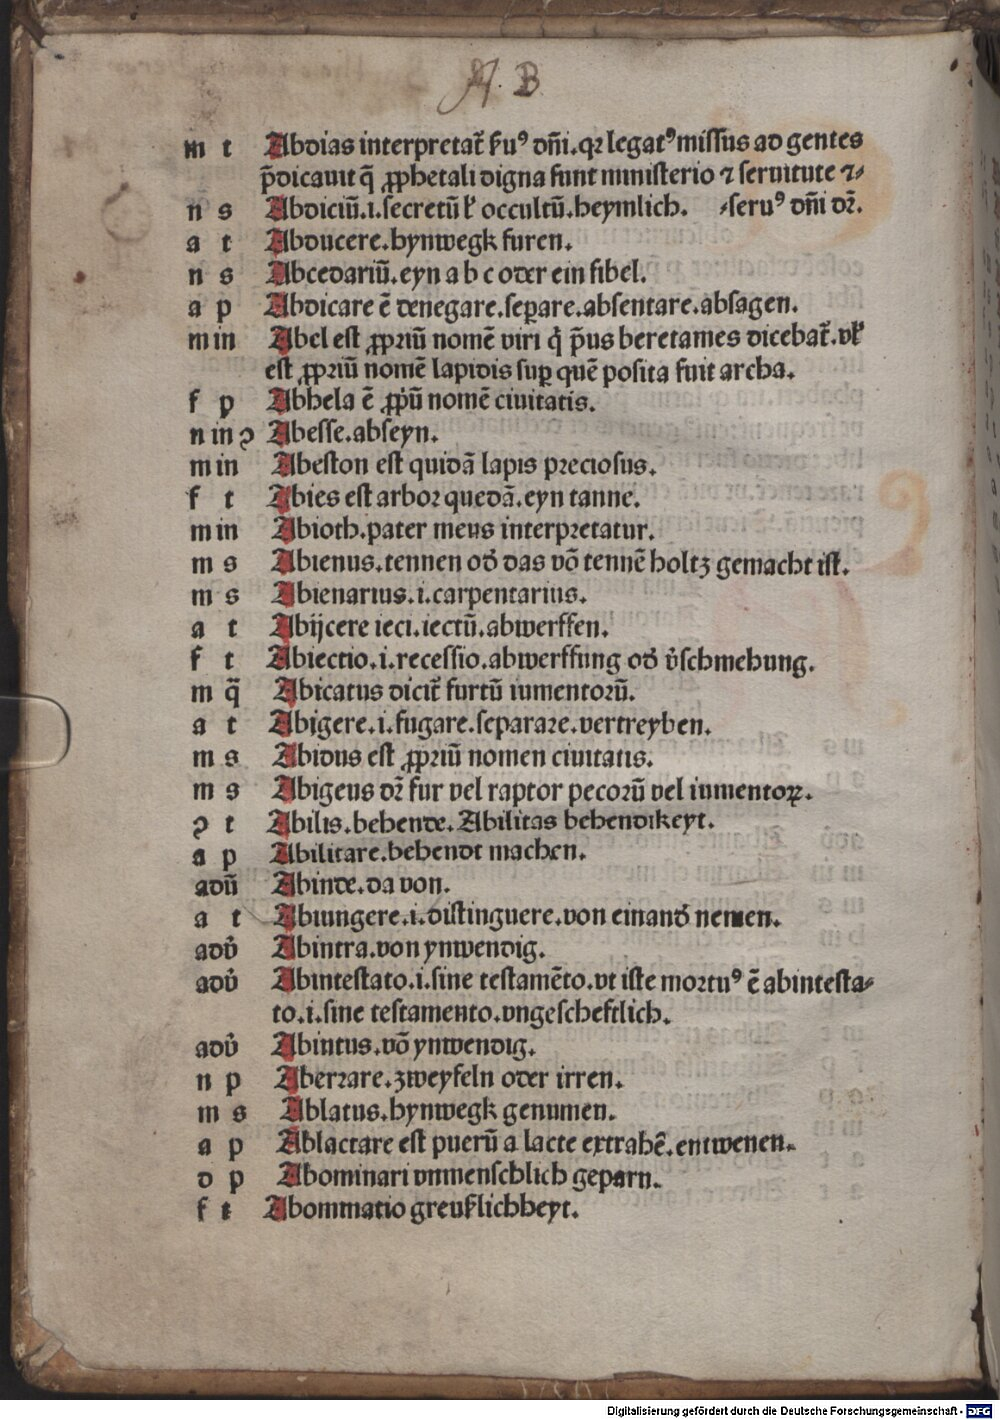 A. B
m t Abdias interpretat̄ ẜuꝰ dn̄i.qꝛ legatꝰ missus ad gentes
p̄dicauit q̄ ꝓphetali digna sunt ministerio ⁊ seruitute ⁊⸗
n s Abdiciū.i.secretū ł occultū.heymlich. ⸗seruꝰ dn̄i dr̄.
a t Abducere.hynwegk furen.
n s Abcedariū.eyn a b c oder ein fibel.
a p Abdicare ē denegare.sepꝑare.absentare.absagen.
m in Abel est ꝓpriū nomē viri q̇ p̄us beretames dicebat̄.vł
est ꝓpriū nomē lapidis suꝑ quē posita fuit archa.
f p Abhela ē ꝓp̄ū nomē ciuitatis.
n in ꝯ Abesse.abseyn.
m in Abeston est quidā lapis preciosus.
f t Abies est arbor quedā.eyn tanne.
m in Abioth.pater meus interpretatur.
m s Abienus.tennen od̓ das vō tennē holtz gemacht ist.
m s Abienarius.i.carpentarius.
a t Abijcere ieci.iectū.abwerffen.
f t Abiectio.i.recessio.abwerffung od̓ v̓schmehung.
m q̄ Abicatus dicit̄ furtū iumentorū.
a t Abigere.i.fugare.separare.vertreyben.
m s Abidus est ꝓpriū nomen ciuitatis.
m s Abigeus dr̄ fur vel raptor pecorū vel iumentoꝝ.
ꝯ t Abilis.behende.Abilitas behendikeyt.
a p Abilitare.behendt machen.
adū Abinde.da von.
a t Abiungere.i.distinguere.von einand̓ nemen.
adv̓ Abintra.von ynwendig.
adv̓ Abintestato.i.sine testamēto.vt iste mortuꝰ ē abintesta⸗
to.i.sine testamento.vngescheftlich.
adv̓ Abintus.vō ynwendig.
n p Aberrare.zweyfeln oder irren.
m s Ablatus.hynwegk genumen.
a p Ablactare est puerū a lacte extrahē.entwenen.
d p Abominari vnmenschlich geparn.
f t Abommatio greuklichheyt.
Digitalisierung gefördert durch die Deutsche Forschungsgemeinschaft - DFG